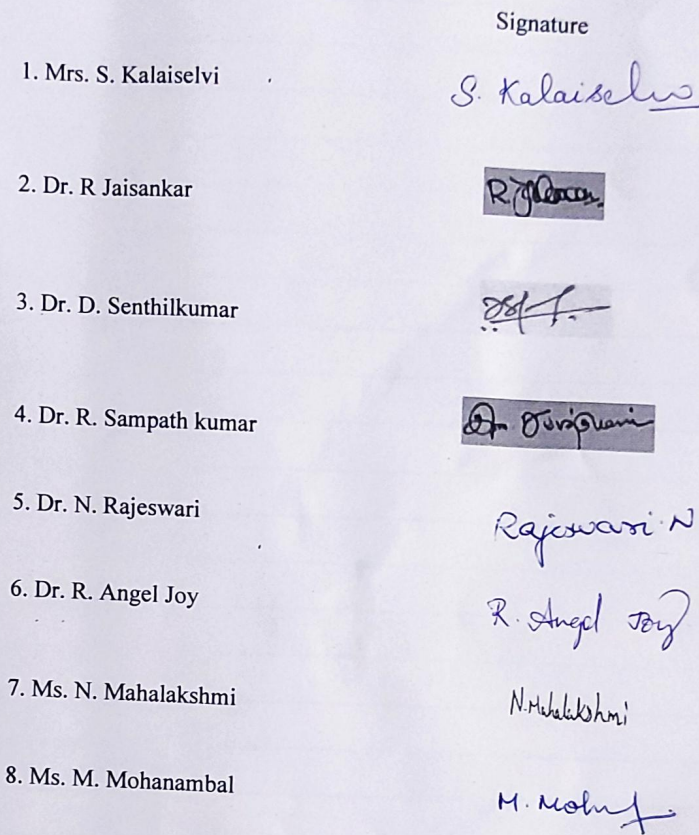 Signature
1. Mrs. S. Kalaiselvi S. Kalaiselvi
2. Dr. R Jaisankar R.
3. Dr. D. Senthilkumar
4. Dr. R. Sampath kumar
5. Dr. N. Rajeswari Rajeswari N
6. Dr. R. Angel Joy R. Angel Joy
7. Ms. N. Mahalakshmi N. Mahalakshmi
8. Ms. M. Mohanambal M.